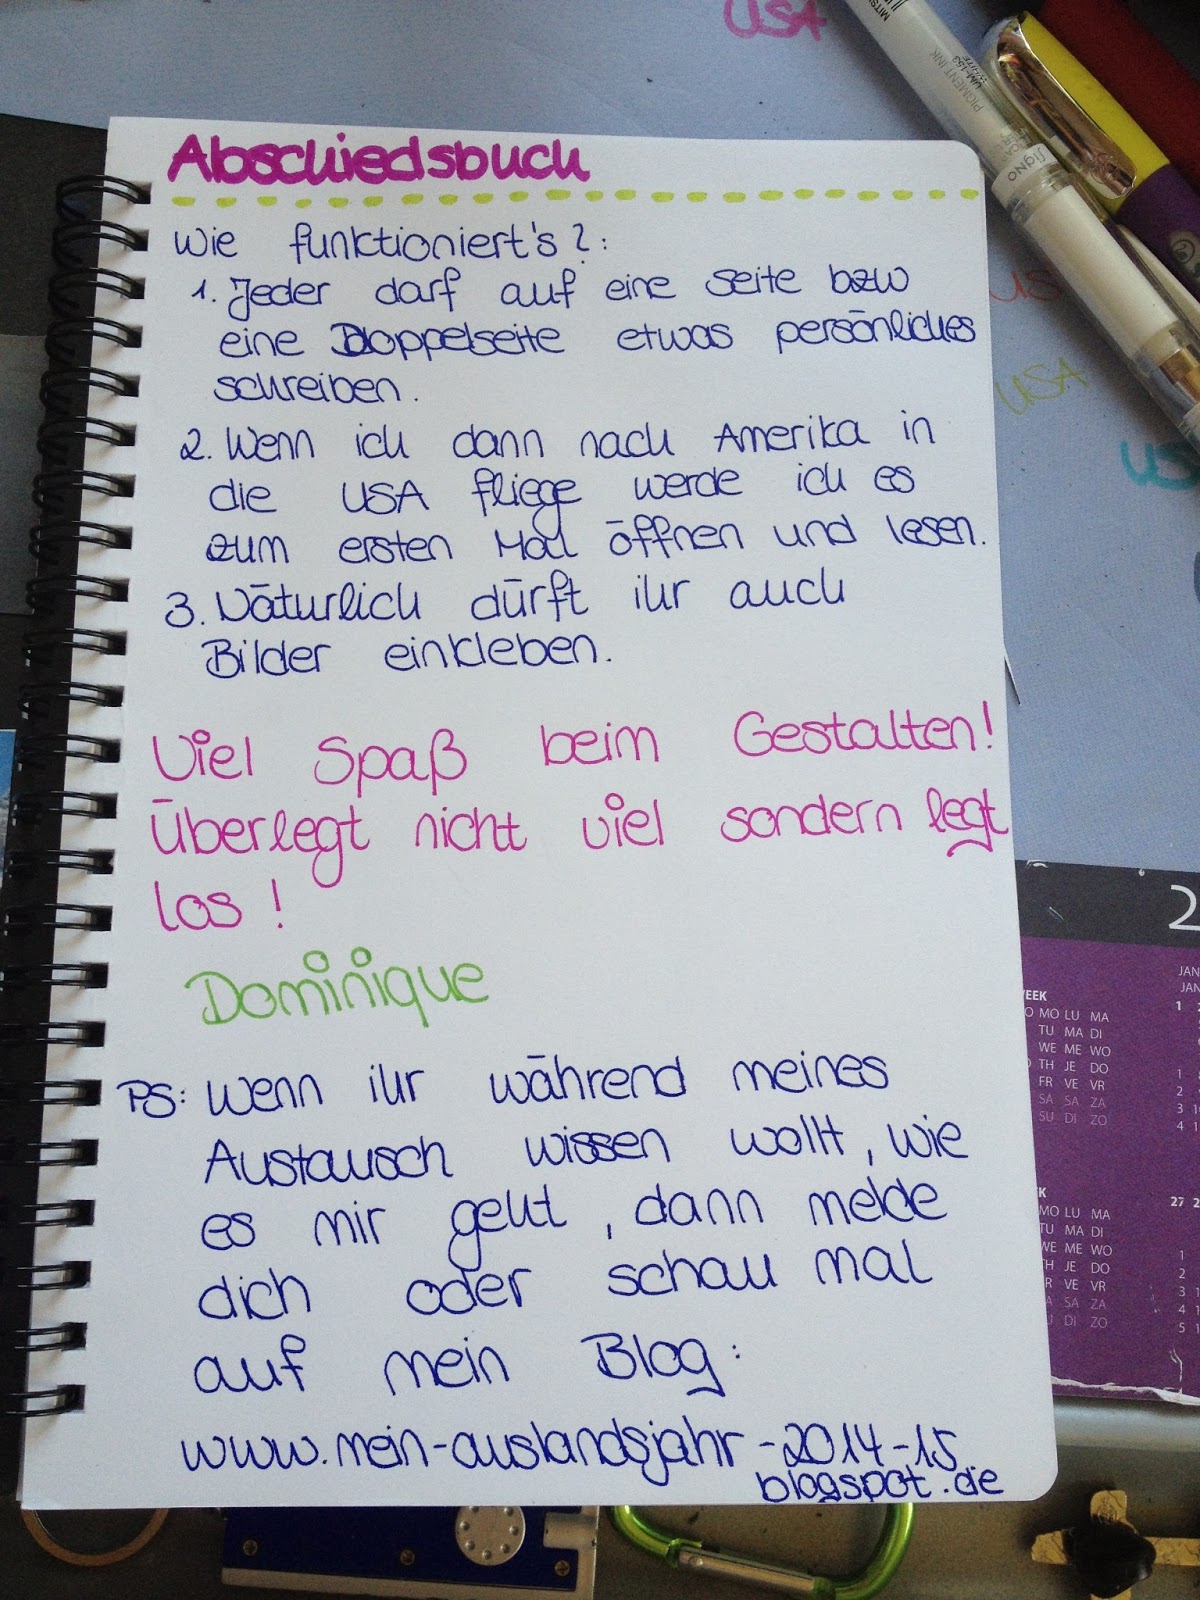 Abschiedsbuch
Wie funktioniert's?:
1. Jeder darf auf eine Seite bzw
eine Doppelseite etwas persönliches
schreiben.
2. Wenn ich dann nach Amerika in
die USA fliege werde ich es
zum ersten Mal öffnen und lesen.
3. Natürlich dürft ihr auch
Bilder einkleben.
Viel Spaß beim Gestalten!
Überlegt nicht viel sondern legt
los!
Dominique
PS: Wenn ihr während meines
Austausch wissen wollt, wie
es mir geht, dann melde
dich oder schau mal
auf mein Blog:
www.mein-auslandsjahr-2014-15.
blogspot.de
USA
USA
US
PIGMENT INK
UM-153
signo
WEEK
MO LU MA
TU MA DI
WE ME WO
TH JE DO
FR VE VR
SA SA ZA
SU DI ZO
JAN
JAN
27
MO LU MA
TU MA DI
WE ME WO
TH JE DO
FR VE VR
SA ZA
DI ZO